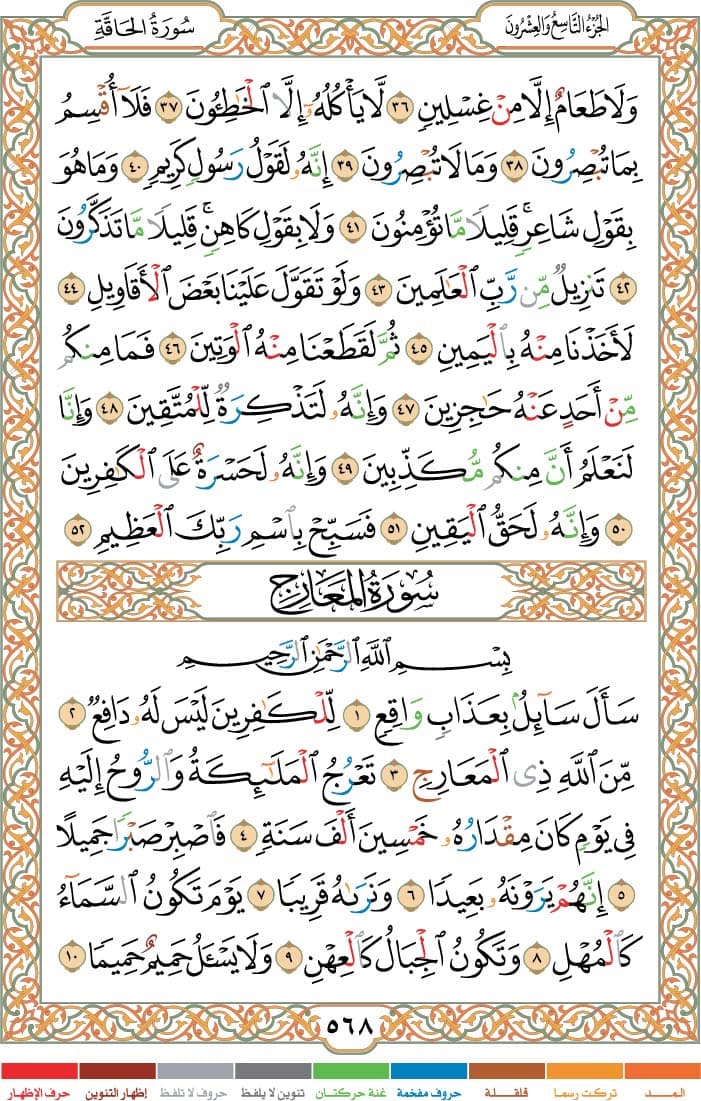 الجزء التاسع والعشرون
سورة الحاقة
وَلَا طَعَامٌ إِلَّا مِنْ غِسْلِينٍ ٣٦ لَّا يَأْكُلُهُۥٓ إِلَّا ٱلْخَٰطِـُٔونَ ٣٧ فَلَآ أُقْسِمُ
بِمَا تُبْصِرُونَ ٣٨ وَمَا لَا تُبْصِرُونَ ٣٩ إِنَّهُۥ لَقَوْلُ رَسُولٍ كَرِيمٍ ٤٠ وَمَا هُوَ
بِقَوْلِ شَاعِرٍ ۚ قَلِيلًا مَّا تُؤْمِنُونَ ٤١ وَلَا بِقَوْلِ كَاهِنٍ ۚ قَلِيلًا مَّا تَذَكَّرُونَ
٤٢ تَنزِيلٌ مِّن رَّبِّ ٱلْعَٰلَمِينَ ٤٣ وَلَوْ تَقَوَّلَ عَلَيْنَا بَعْضَ ٱلْأَقَاوِيلِ ٤٤
لَأَخَذْنَا مِنْهُ بِٱلْيَمِينِ ٤٥ ثُمَّ لَقَطَعْنَا مِنْهُ ٱلْوَتِينَ ٤٦ فَمَا مِنكُم
مِّنْ أَحَدٍ عَنْهُ حَٰجِزِينَ ٤٧ وَإِنَّهُۥ لَتَذْكِرَةٌ لِّلْمُتَّقِينَ ٤٨ وَإِنَّا
لَنَعْلَمُ أَنَّ مِنكُم مُّكَذِّبِينَ ٤٩ وَإِنَّهُۥ لَحَسْرَةٌ عَلَى ٱلْكَٰفِرِينَ
٥٠ وَإِنَّهُۥ لَحَقُّ ٱلْيَقِينِ ٥١ فَسَبِّحْ بِٱسْمِ رَبِّكَ ٱلْعَظِيمِ ٥٢
سورة المعارج
بِسْمِ ٱللَّهِ ٱلرَّحْمَٰنِ ٱلرَّحِيمِ
سَأَلَ سَآئِلٌۢ بِعَذَابٍ وَاقِعٍ ١ لِّلْكَٰفِرِينَ لَيْسَ لَهُۥ دَافِعٌ ٢
مِّنَ ٱللَّهِ ذِى ٱلْمَعَارِجِ ٣ تَعْرُجُ ٱلْمَلَٰٓئِكَةُ وَٱلرُّوحُ إِلَيْهِ
فِى يَوْمٍ كَانَ مِقْدَارُهُۥ خَمْسِينَ أَلْفَ سَنَةٍ ٤ فَٱصْبِرْ صَبْرًا جَمِيلًا
٥ إِنَّهُمْ يَرَوْنَهُۥ بَعِيدًا ٦ وَنَرَىٰهُ قَرِيبًا ٧ يَوْمَ تَكُونُ ٱلسَّمَآءُ
كَٱلْمُهْلِ ٨ وَتَكُونُ ٱلْجِبَالُ كَٱلْعِهْنِ ٩ وَلَا يَسْـَٔلُ حَمِيمٌ حَمِيمًا ١٠
٥٦٨
المـد تركت رسما قلقلة حروف مفخمة غنة حركتان تنوين لا يلفظ حروف لا تلفظ إظهار التنوين حرف الإظهار